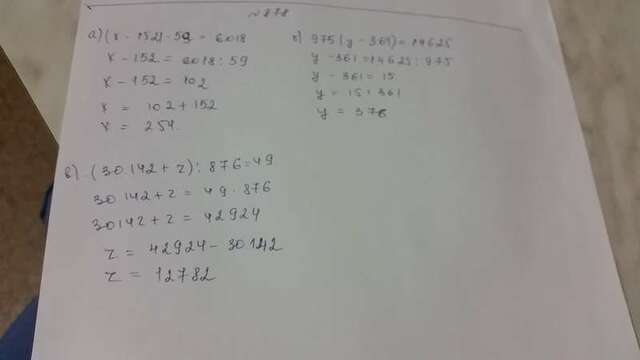 N 878
а) (x - 152) · 59 = 6018
x - 152 = 6018 : 59
x - 152 = 102
x = 102 + 152
x = 254
б) 975 (y - 361) = 14625
y - 361 = 14625 : 975
y - 361 = 15
y = 15 + 361
y = 376
в) (30142 + z) : 876 = 49
30142 + z = 49 · 876
30142 + z = 42924
z = 42924 - 30142
z = 12782